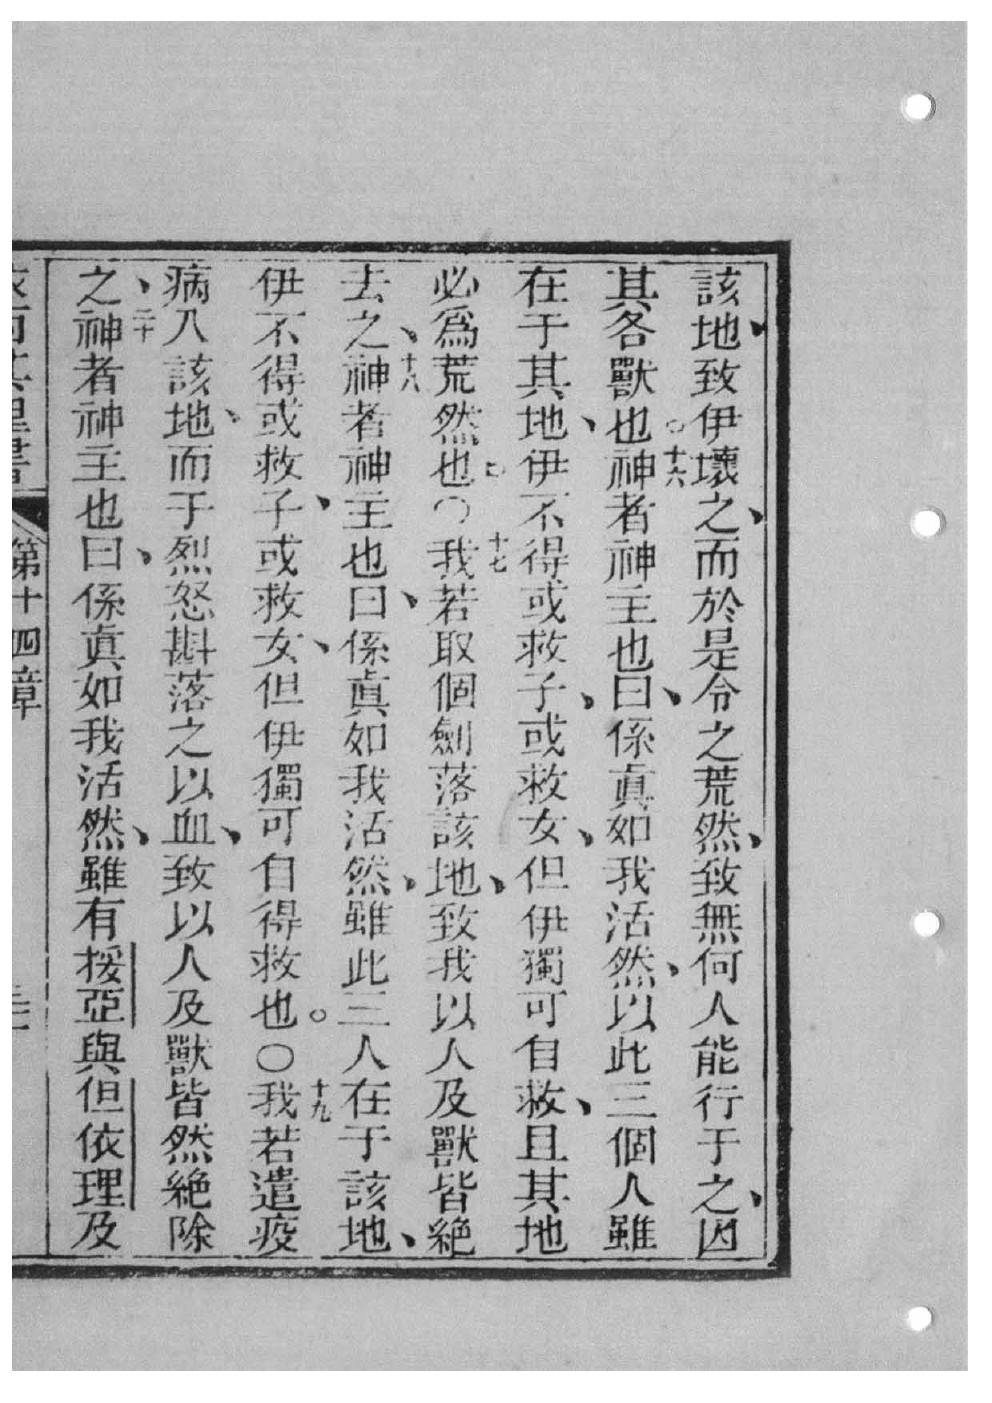 該地、致伊壞之、而於是令之荒然、致無何人能行于之、因
其各獸也。十六神者神主也曰、係眞如我活然、以此三個人雖
在于其地、伊不得或救子、或救女、但伊獨可自救、且其地
必爲荒然也。○十七我若取個劍落該地、致我以人及獸皆絶
去之、十八神者神主也曰、係眞如我活然、雖此三人在于該地、
伊不得或救子、或救女、但伊獨可自得救也。○十九我若遣疫
病入該地、而于烈怒斟落之以血、致以人及獸皆然絕除
之、二十神者神主也曰、係眞如我活然、雖有挼亞與但依理及
書 第十四章